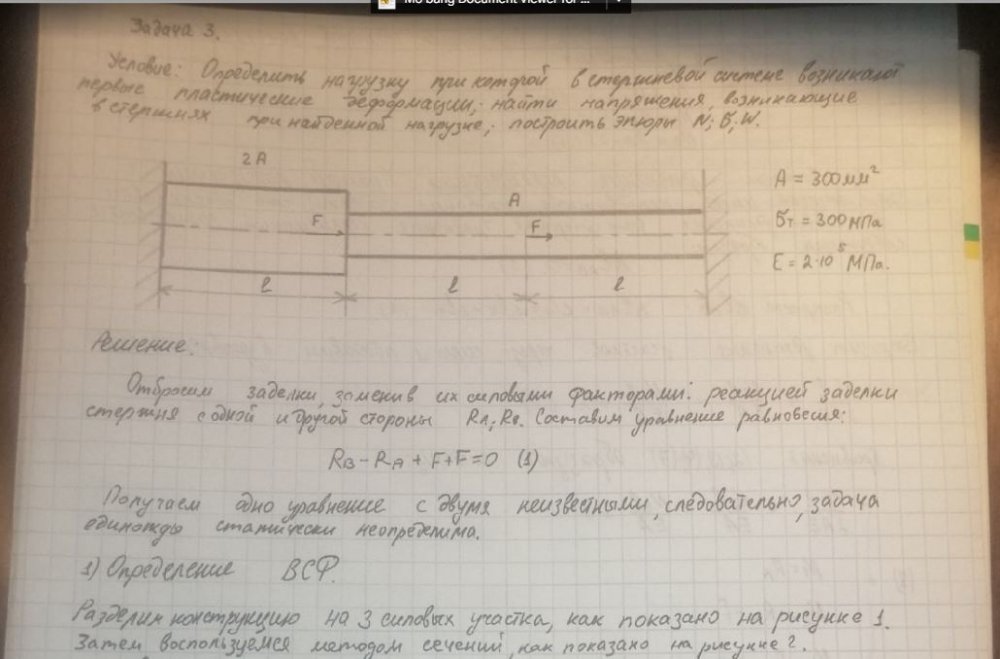 Mo bang Document Viewer for ...
Задача 3.
Условие: Определить нагрузку при которой в стержневой системе возникают
первые пластические деформации; найти напряжения, возникающие
в стержнях при найденной нагрузке; построить эпюры N; σ; W.
2A
A
F
F
A = 300 мм²
σт = 300 МПа
E = 2·10⁵ МПа.
l
l
l
Решение:
Отбросим заделки, заменив их силовыми факторами: реакцией заделки
стержня с одной и другой стороны RA; RB. Составим уравнение равновесия:
RB - RA + F + F = 0 (1)
Получаем одно уравнение с двумя неизвестными, следовательно, задача
единожды статически неопределима.
1) Определение ВСФ.
Разделим конструкцию на 3 силовых участка, как показано на рисунке 1.
Затем воспользуемся методом сечений, как показано на рисунке 2.